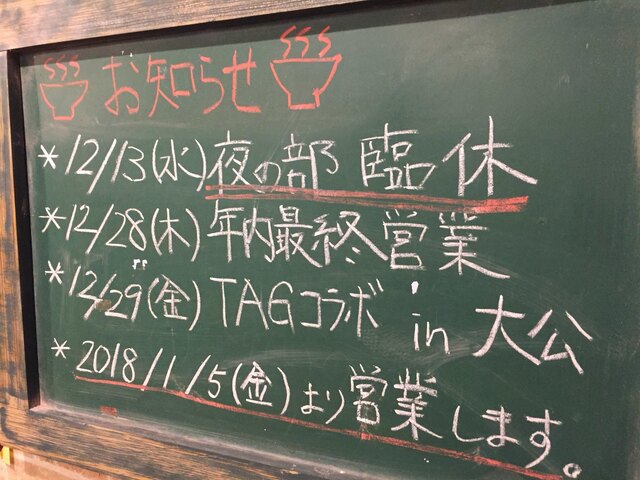 お知らせ
*12/13(水)夜の部 臨休
*12/28(木) 年内最終営業
*12/29(金) TAGコラボ in 大公
*2018/1/5(金)より営業します。